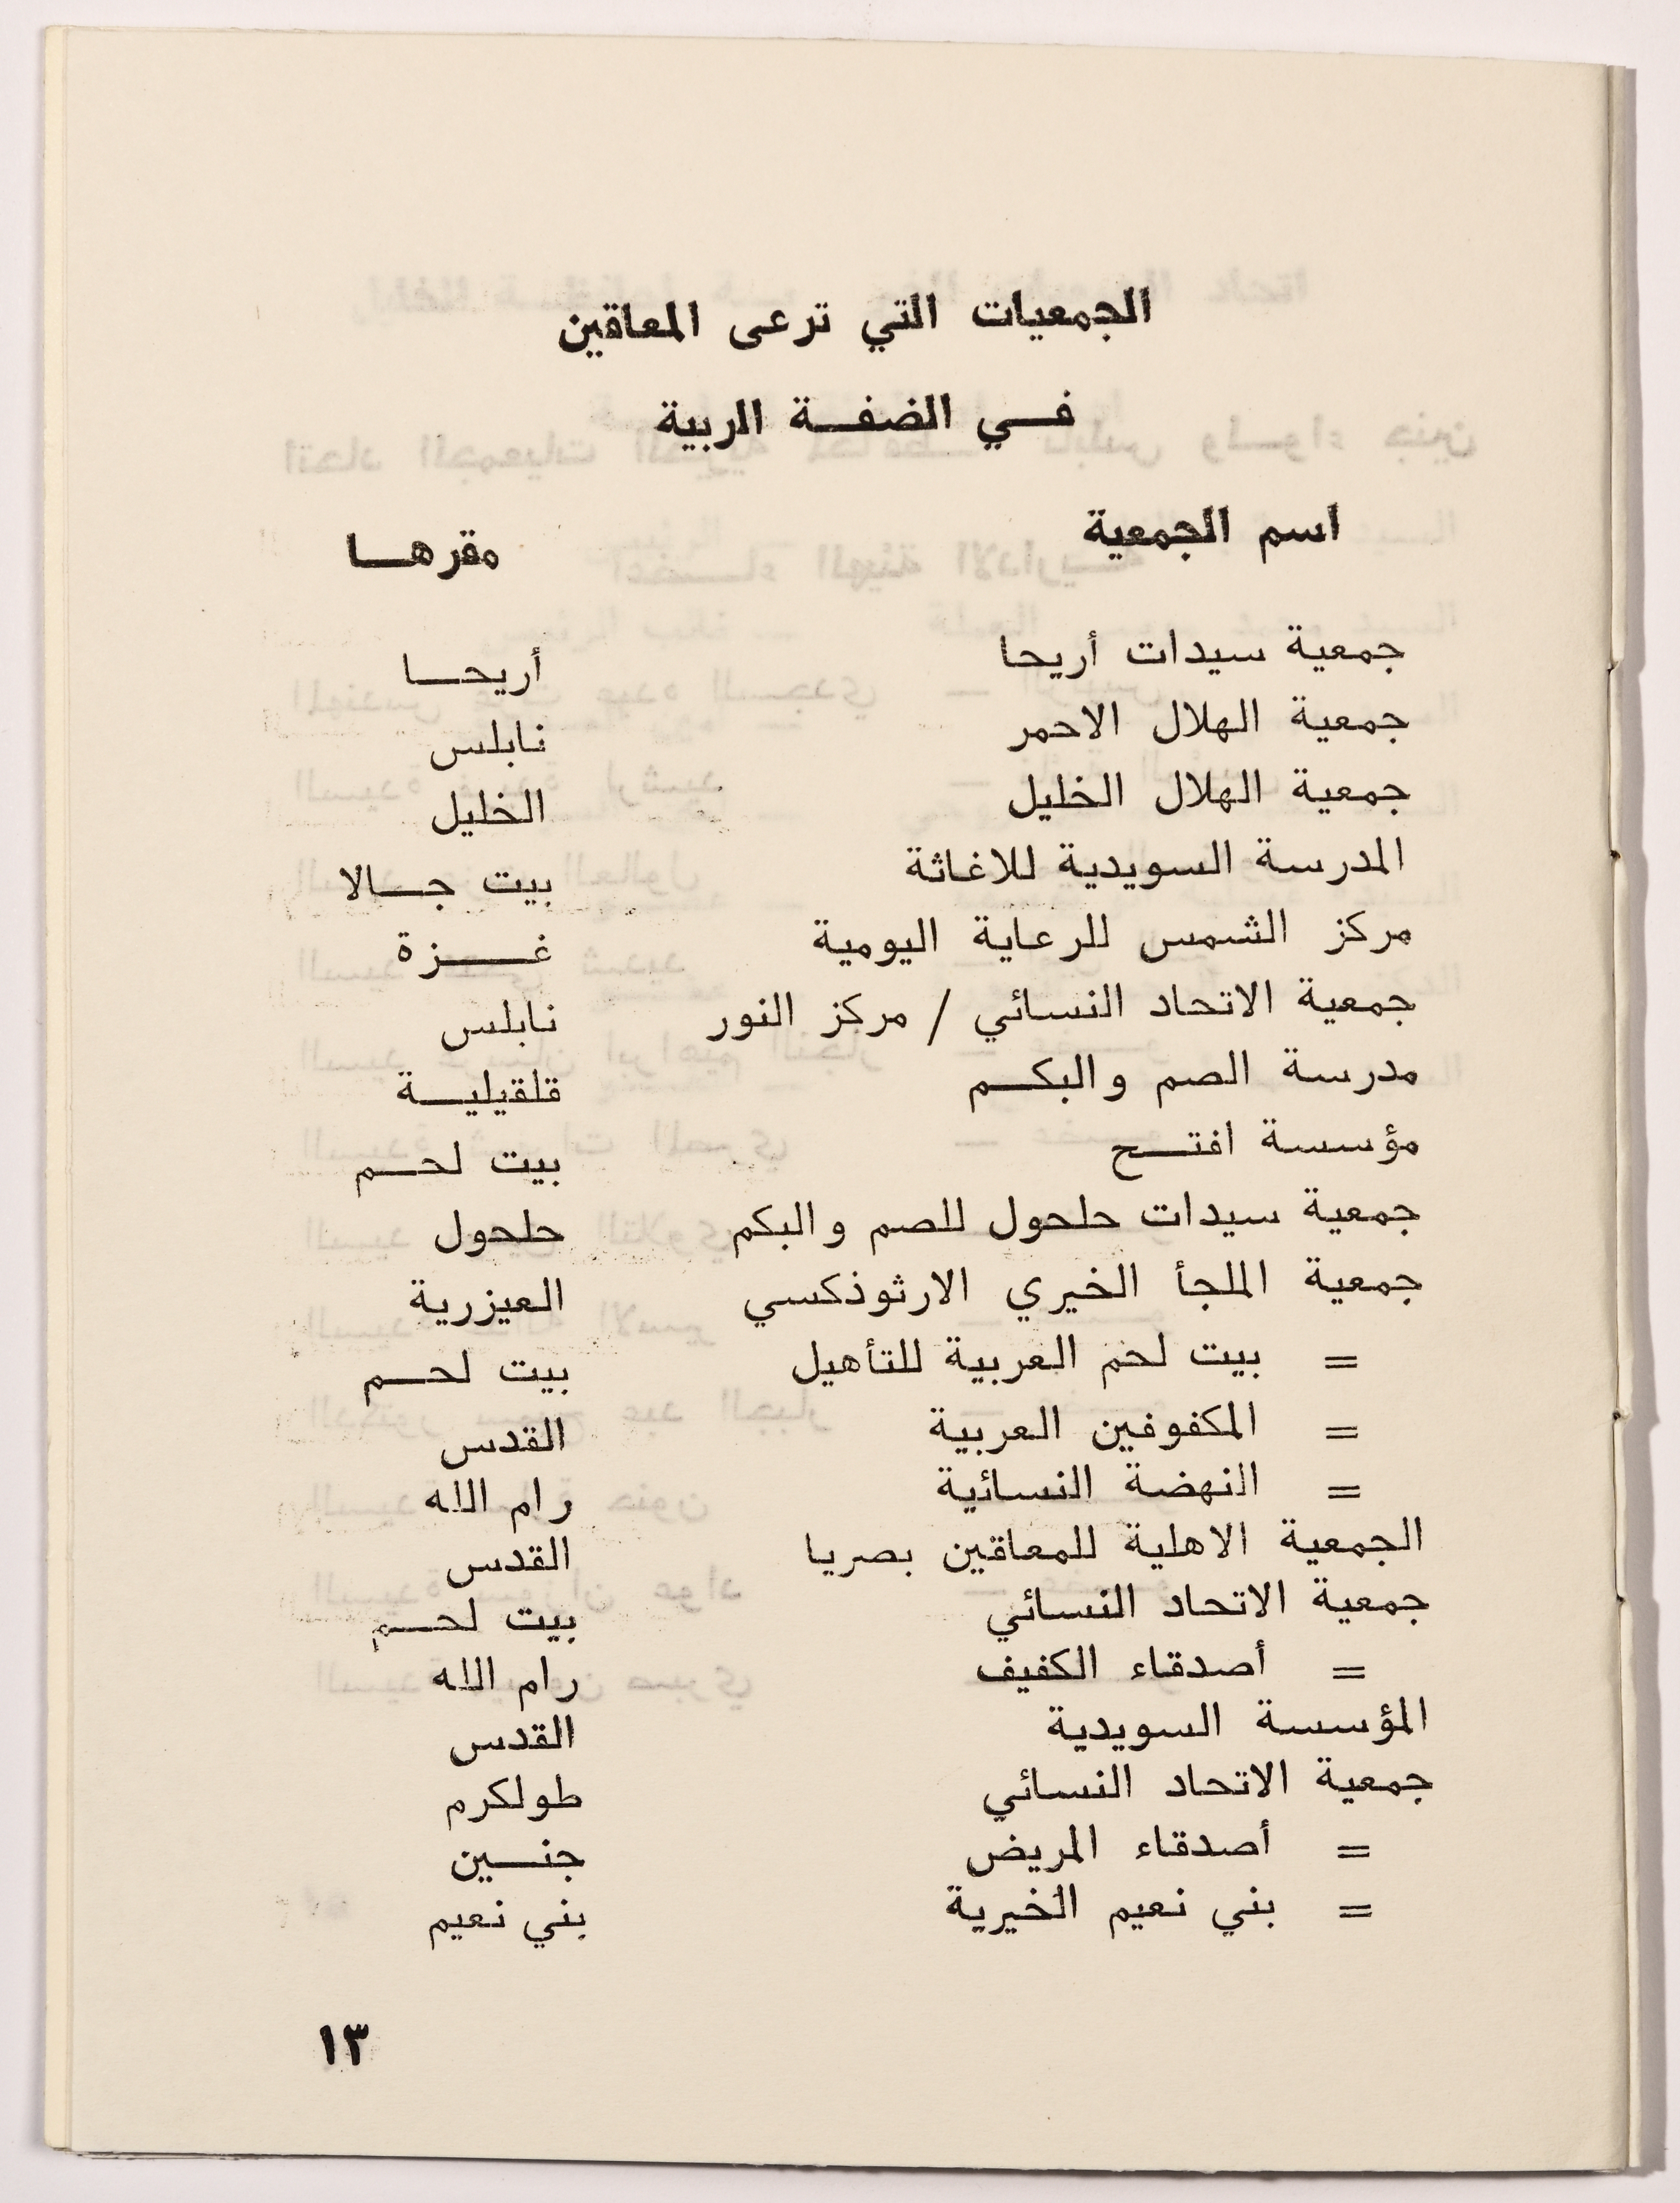 الجمعيات التي ترعى المعاقين
في الضفة الربية
اسم الجمعية مقرها
جمعية سيدات أريحا أريحا
جمعية الهلال الاحمر نابلس
جمعية الهلال الخليل الخليل
المدرسة السويدية للاغاثة بيت جالا
مركز الشمس للرعاية اليومية غزة
جمعية الاتحاد النسائي / مركز النور نابلس
مدرسة الصم والبكم قلقيلية
مؤسسة افتح بيت لحم
جمعية سيدات حلحول للصم والبكم حلحول
جمعية الملجأ الخيري الارثوذكسي العيزرية
= بيت لحم العربية للتأهيل بيت لحم
= المكفوفين العربية القدس
= النهضة النسائية رام الله
الجمعية الاهلية للمعاقين بصريا القدس
جمعية الاتحاد النسائي بيت لحم
= أصدقاء الكفيف رام الله
المؤسسة السويدية القدس
جمعية الاتحاد النسائي طولكرم
= أصدقاء المريض جنين
= بني نعيم الخيرية بني نعيم
١٣